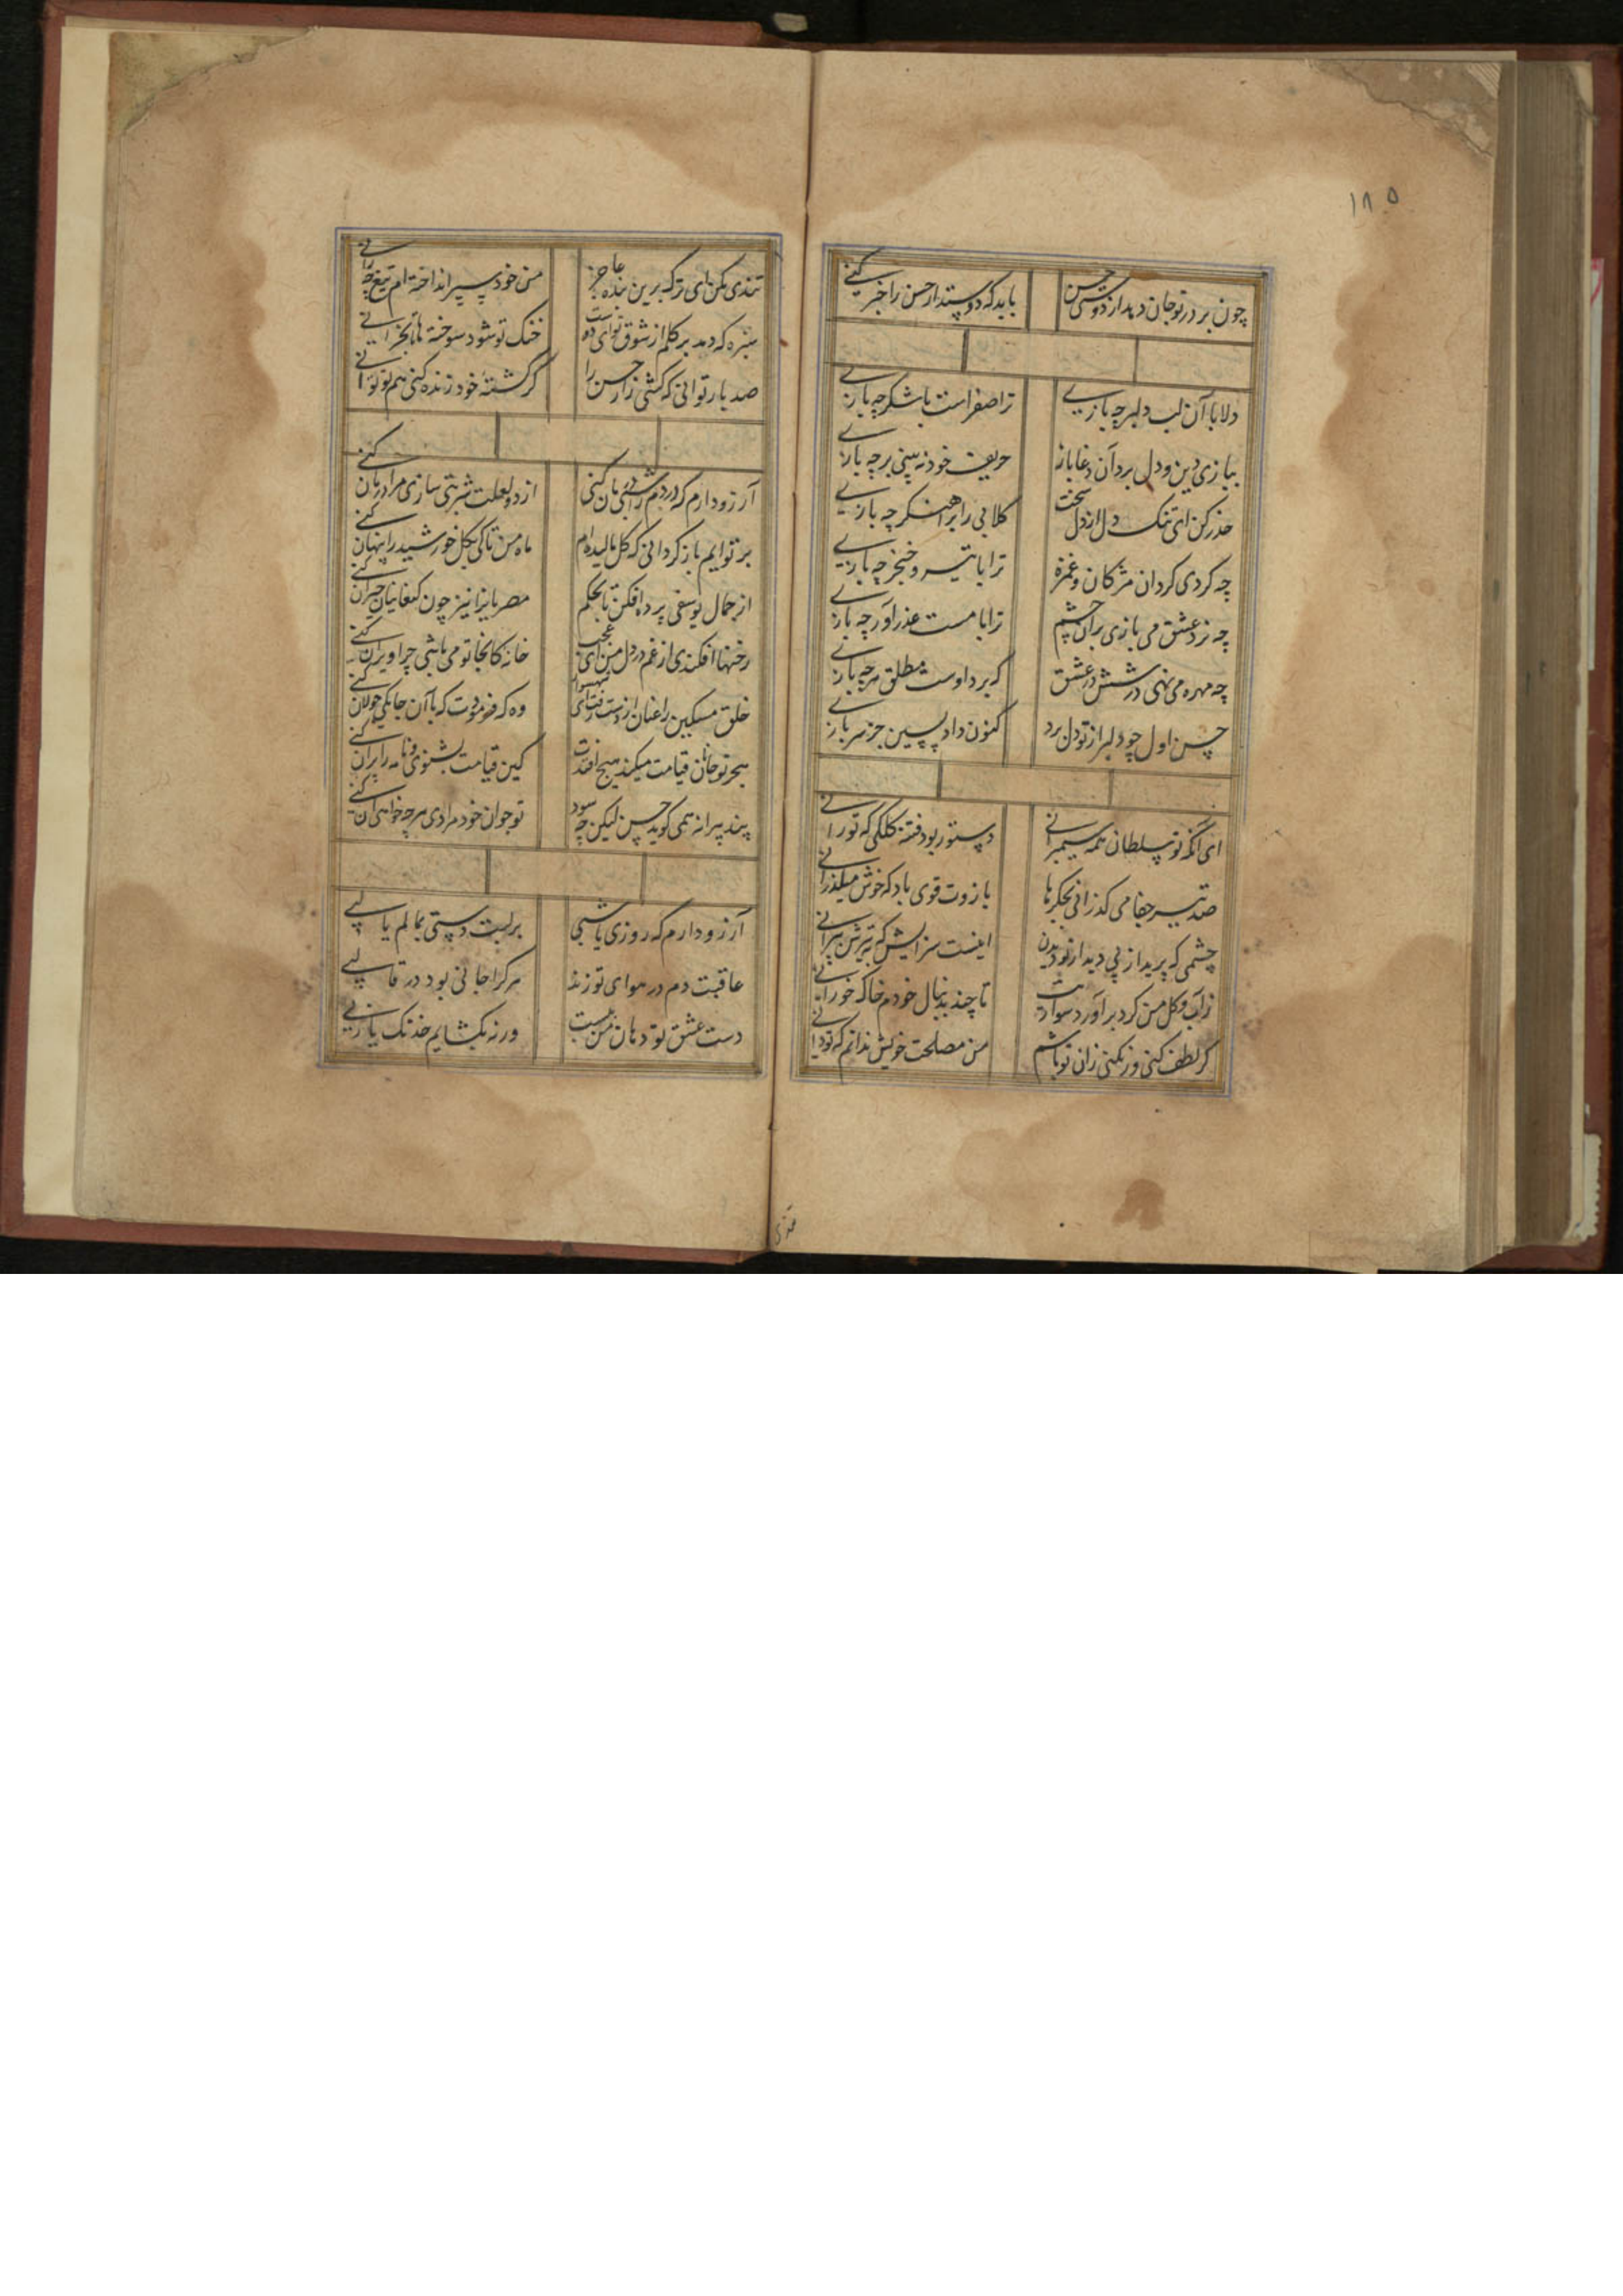 ۱۸۵
چون بر در تو جان دهد از دوستی حسن
باید که دوستدار حسن را خبر کنی
دلا با آن لب دلبر چه بازی
ترا صفراست با شکر چه بازی
ببازی دین و دل برد آن دغاباز
حریف خود نه بینی بر چه بازی
حذر کن ای تنک دل از دل سخت
کلابی را بر آهنگر چه بازی
چه کردی کرد آن مژکان و غمزه
ترا با تیر و خنجر چه بازی
چه نرد عشق می بازی بر آن چشم
ترا با مست عذرآور چه بازی
چه مهره می نهی در ششدر عشق
که برد اوست مطلق هر چه بازی
حسن اول چو دلبر از تو دل برد
کنون داد پسین جز سر بازی
ای آنکه تو سلطان همه سیمبرانی
دستور بود فتنه کلکی که تو رانی
صد تیر جفا می گذرانی بجگرها
بازوت قوی باد که خوش میگذرانی
چشمی که پرید از پی دیدار تو دیدن
اینست سزایش که به تیرش بپرانی
ز آب و کل من کرد برآورد سوادت
تا چند بدنبال خودم خاک خورانی
گر لطف کنی ور نکنی زان تو باشم
من مصلحت خویش ندانم که تو دانی
تندی
تندی مکن ای ترک برین بنده عاجز
من خود سپر انداخته ام تیغ چه رانی
سبزه که دمد بر کلم از شوق تو ای دوست
خنک تو شود سوخته تا باز چرانی
صد بار توانی که کشی زار حسن را
گر کشتهٔ خود زنده کنی هم تو توانی
آرزو دارم که دردم را شبی درمان کنی
از دو لعلت شربتی سازی مرا درمان کنی
بر تو ایم باز کردانی که کل مالیده ام
ماه من تا کی بکل خورشید را پنهان کنی
از جمال یوسفی پرده افکن تا بحکم
مصریانرا نیز چون کنعانیان حیران کنی
رخنها افکندی از غم در دل من ای عجب
خانه کانجا تو می باشی چرا ویران کنی
خلق مسکین را عنان از دست رفت ای شهسوار
وه که فرمودت که با آن چابکی جولان کنی
هجر تو جانان قیامت میکند هیچ افتدت
کین قیامت بشنوی و نامه را پران کنی
پند پیرانه همی گوید حسن لیکن چه سود
تو جوان خود مرادی هر چه خواهی آن کنی
آرزو دارم که روزی یا شبی
بر لبت دستی بمالم یا لبی
عاقبت دم در هوای تو زند
هر کرا جانی بود در قالبی
دست عشق تو دهان من ببست
ورنه بگشایم خدنگ یا ربی